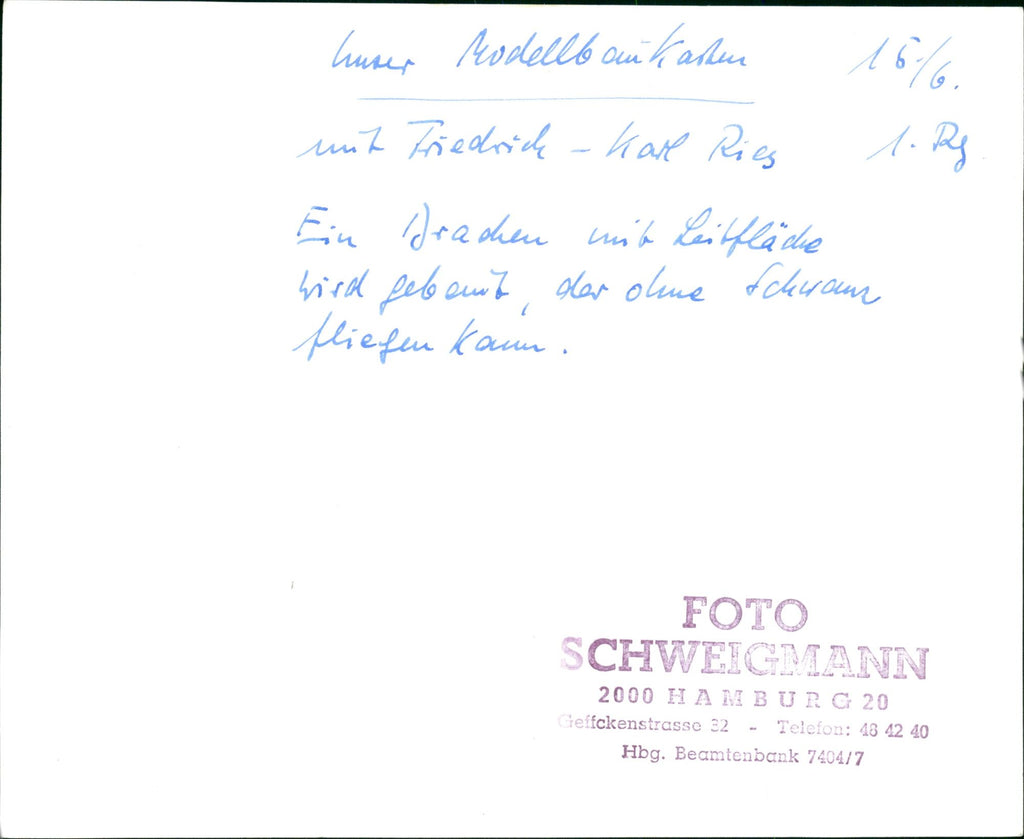 Unser Modellbaukasten 15/6.
mit Friedrich-Karl Ries 1. Rg
Ein Drachen mit Leitfläche
wird gebaut, der ohne Schwanz
fliegen kann.
FOTO
SCHWEIGMANN
2000 HAMBURG 20
Geffckenstrasse 32 - Telefon: 48 42 40
Hbg. Beamtenbank 7404/7